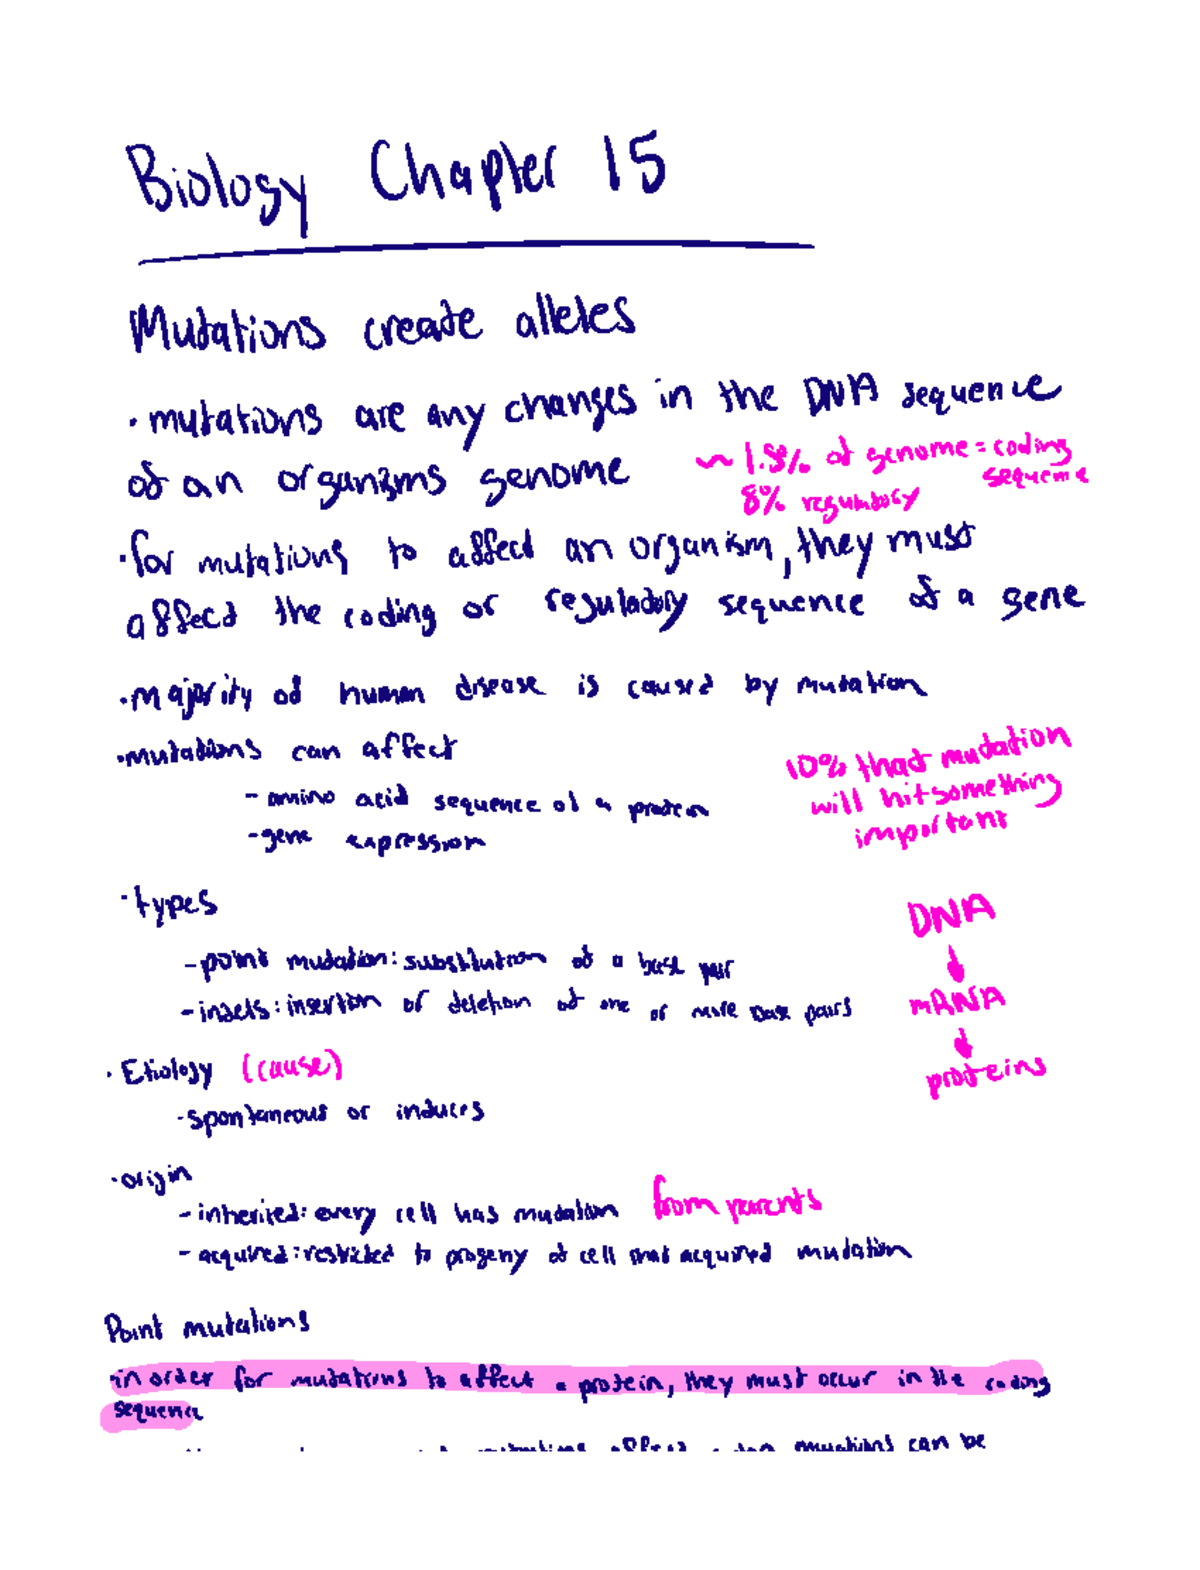 Biology Chapter 15
Mutations create alleles
· mutations are any changes in the DNA sequence
of an organisms genome
~ 1.5% of genome = coding
sequence
8% regulatory
· for mutations to affect an organism, they must
affect the coding or regulatory sequence of a gene
· majority of human disease is caused by mutation
· mutations can affect
- amino acid sequence of a protein
- gene expression
10% that mutation
will hit something
important
· types
- point mutation: substitution of a base pair
- indels: insertion or deletion of one or more base pairs
DNA
↓
mRNA
↓
proteins
· Etiology (cause)
- spontaneous or induces
· origin
- inherited: every cell has mutation from parents
- acquired: restricted to progeny of cell that acquired mutation
Point mutations
· in order for mutations to affect a protein, they must occur in the coding
sequence
mutations can be